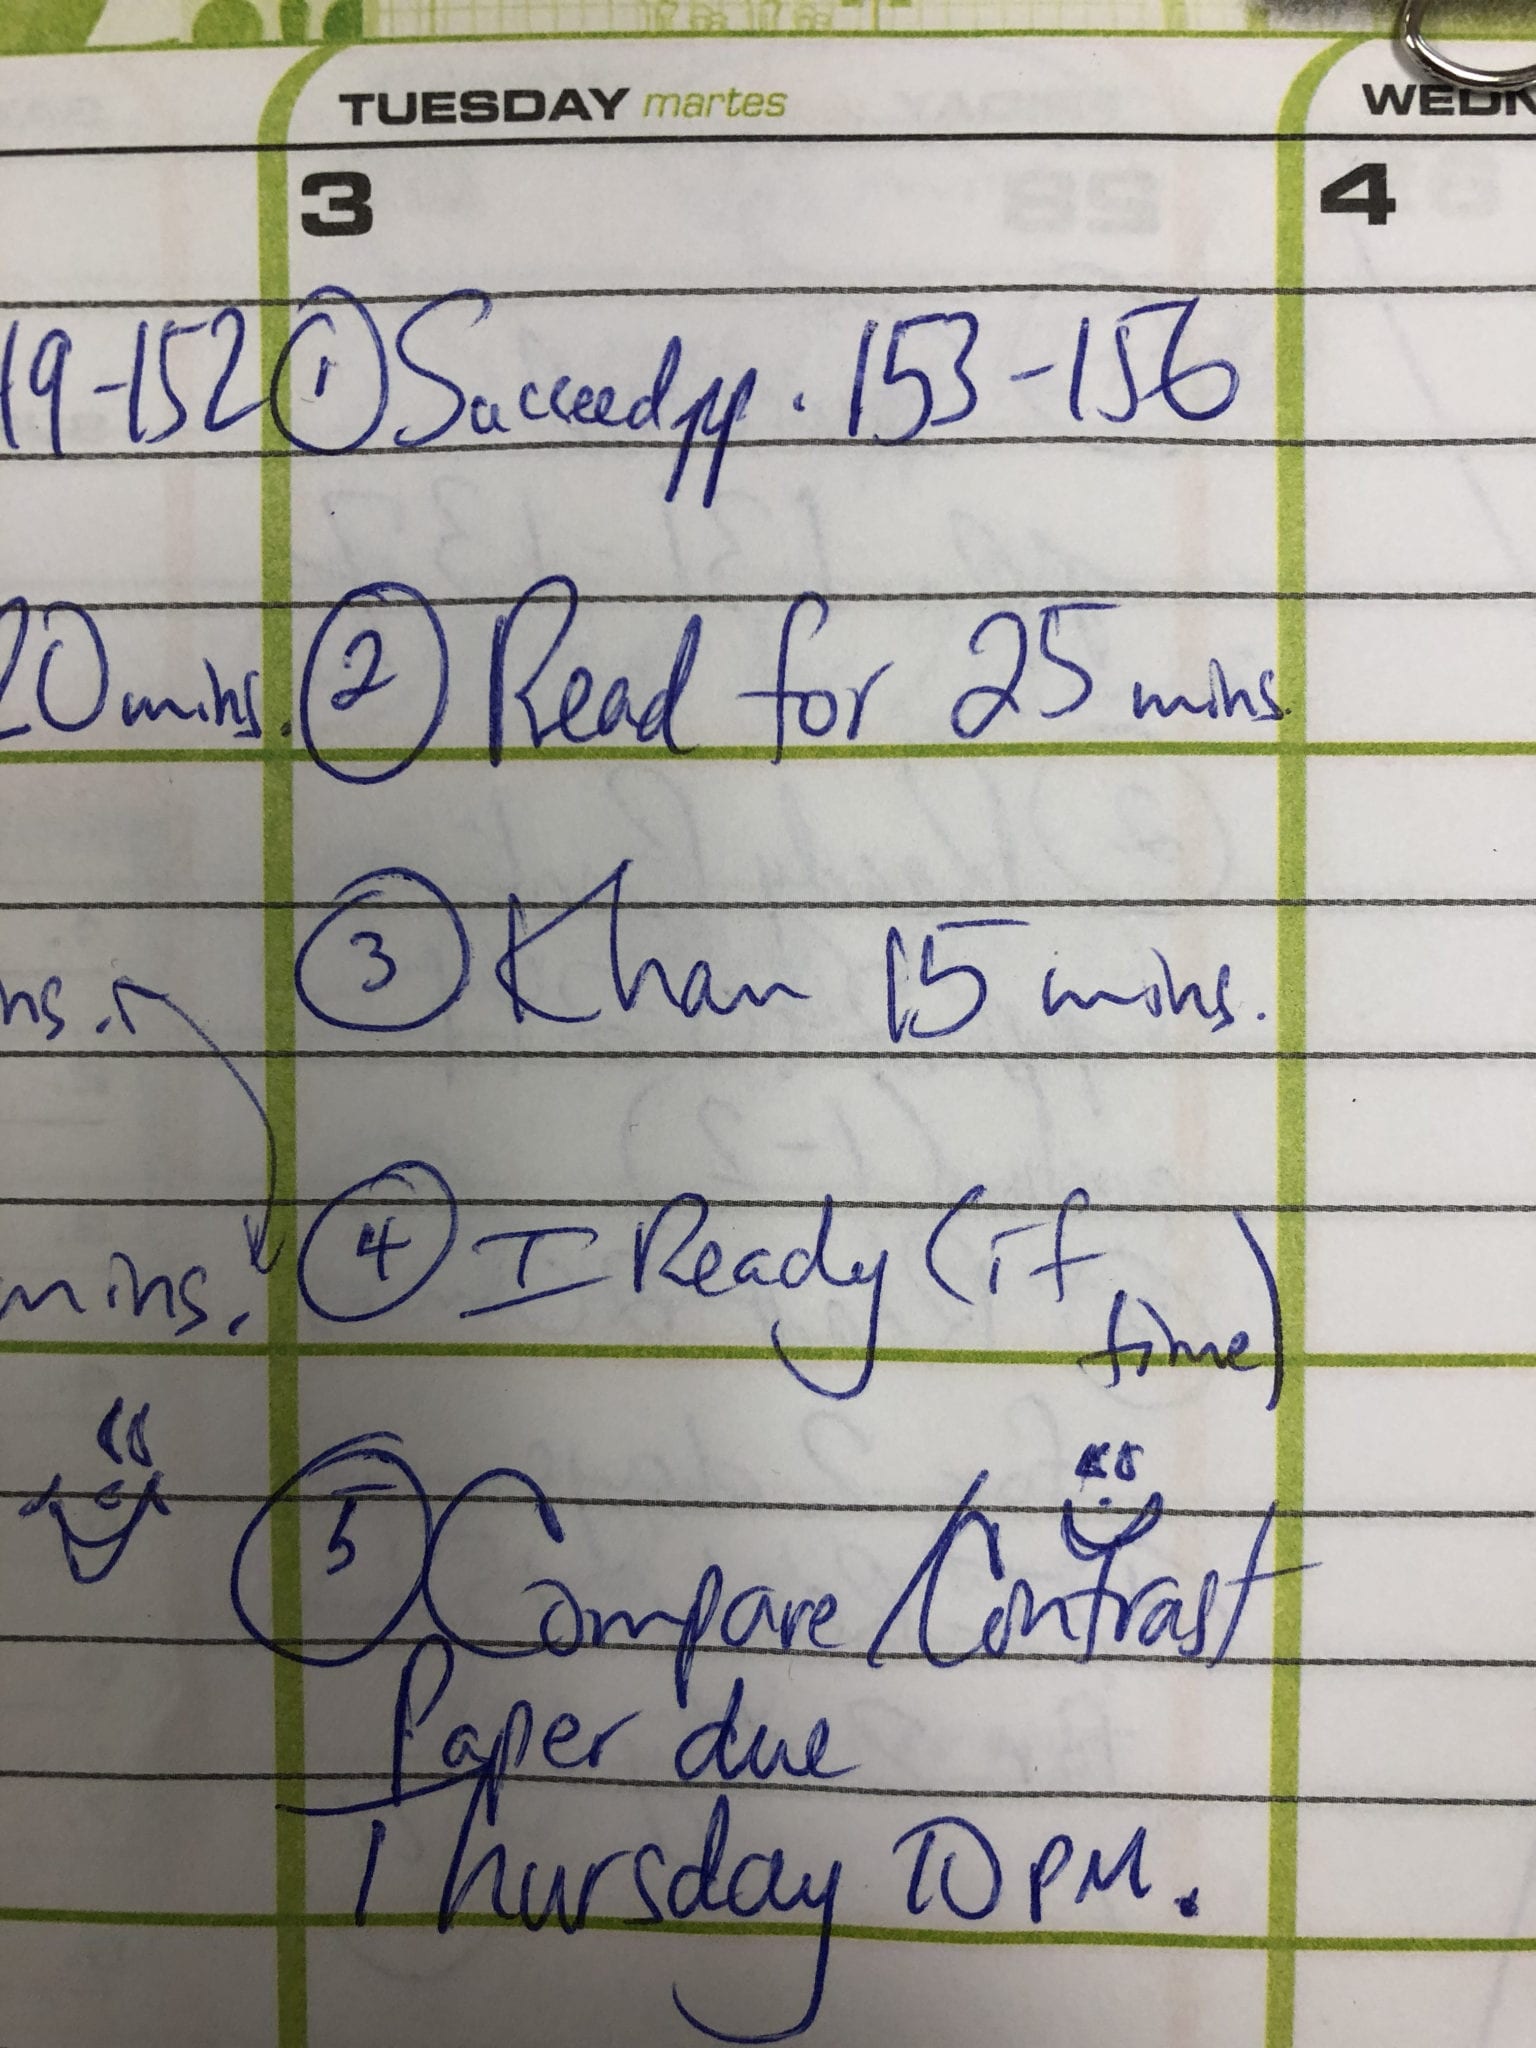 TUESDAY martes
WEDN
3
4
19-152
① Succeed pp. 153-156
20 mins.
② Read for 25 mins.
③ Khan 15 mins.
ns.
④ I Ready (if
time)
mins.
⑤ Compare/Contrast
Paper due
Thursday 10 PM.